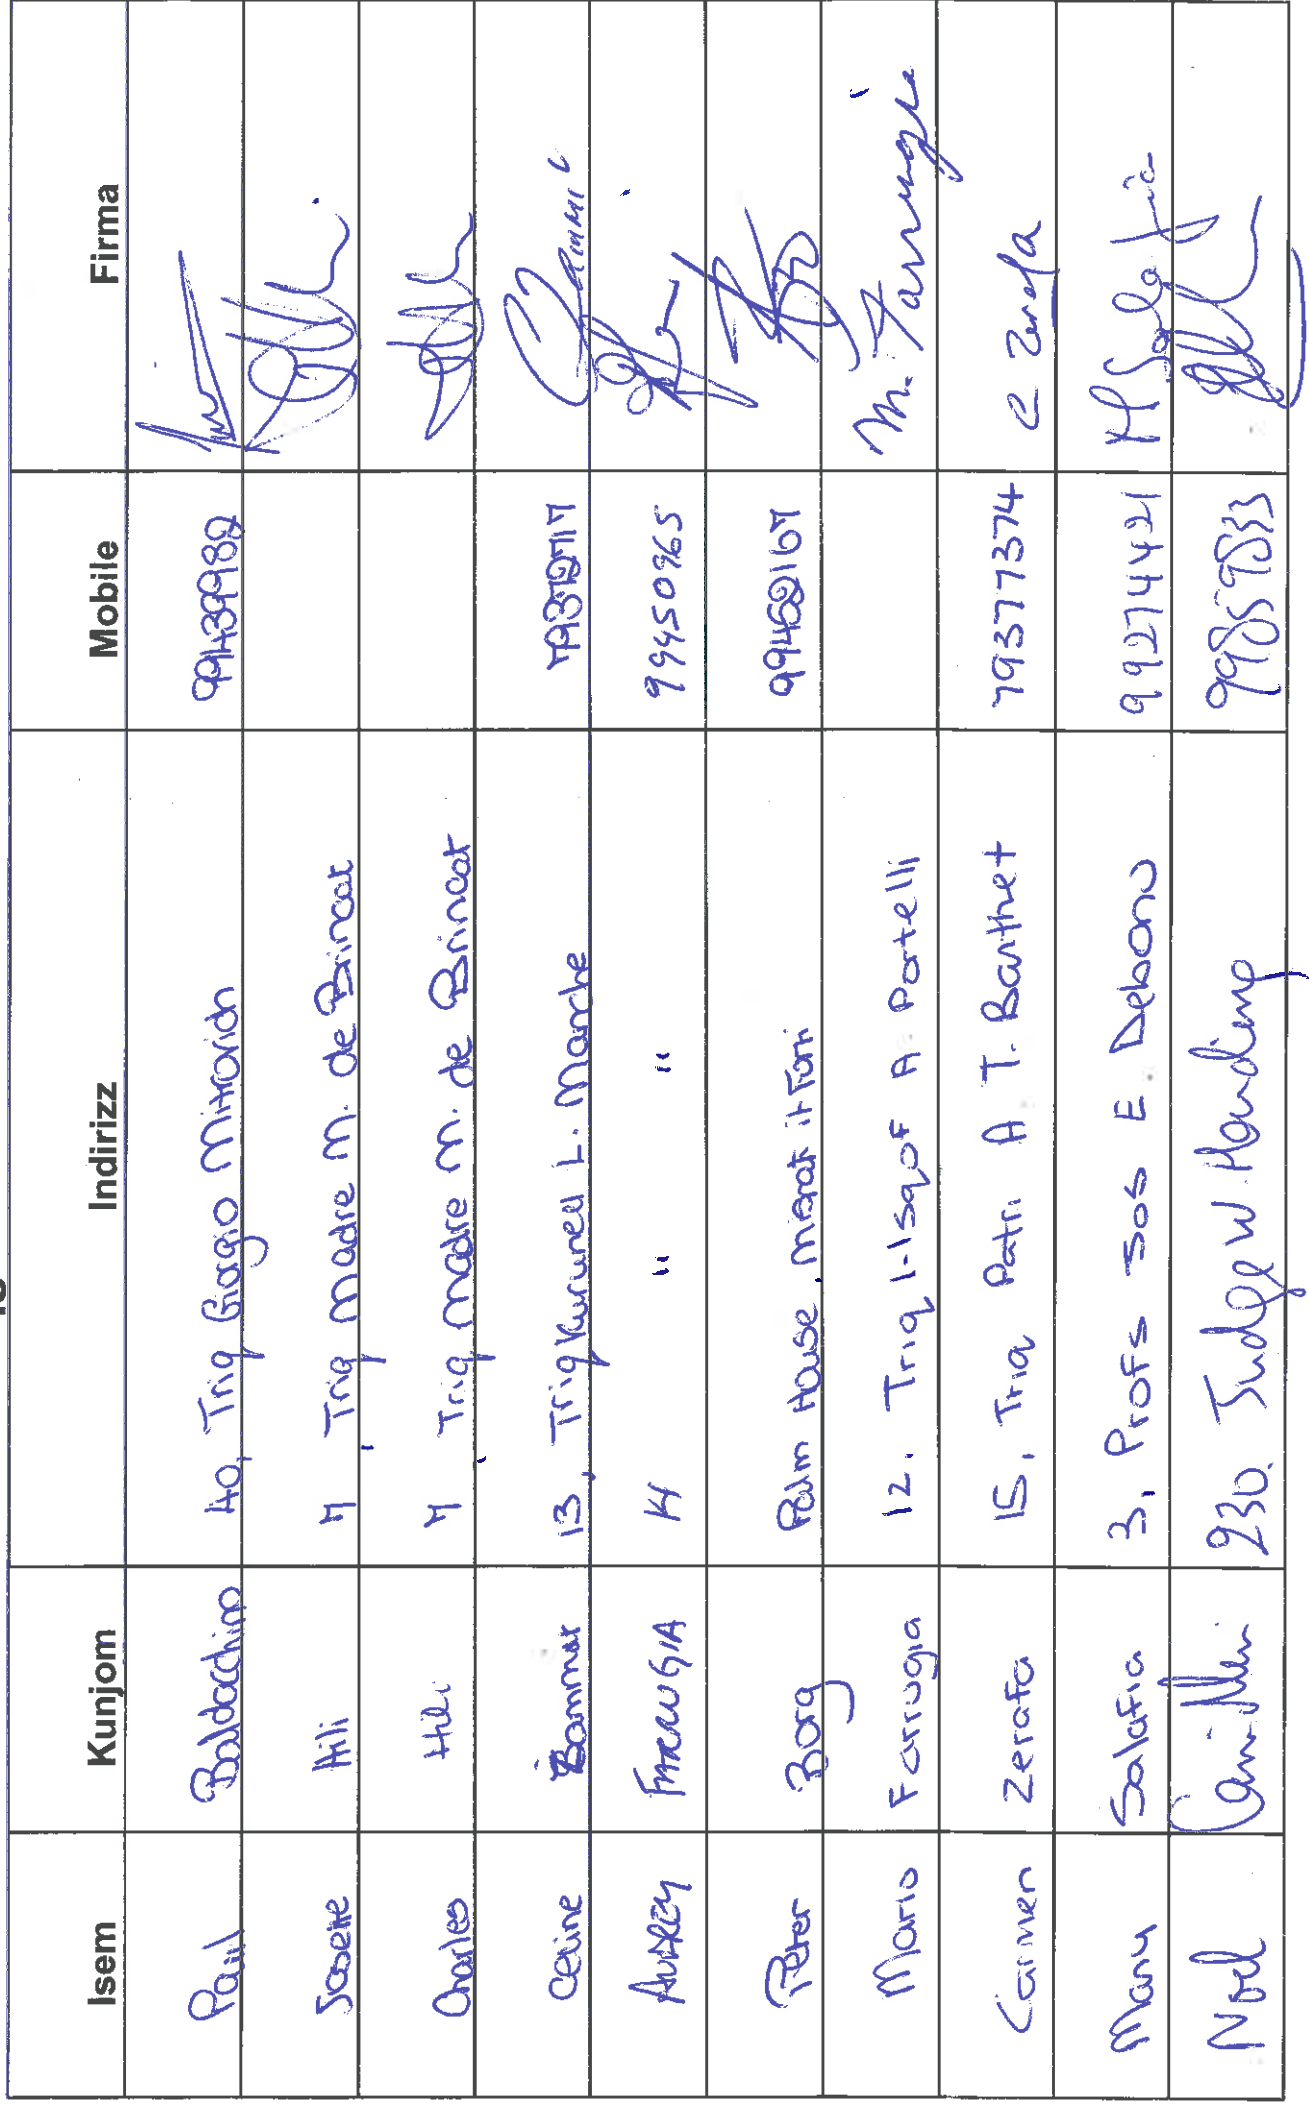 Isem Kunjom Indirizz Mobile Firma
Paul Baldacchino 40, Triq Giorgio Mitrovich 99439982
Josette Hili 7 Triq Madre M. de Brincat
Charles Hili 7 Triq Madre M. de Brincat
Celine 13, Triq Kurunell L. Manche
AUDREY FARRUGIA 14 " " 99450965
Peter Borg Palm House, it-Torri 99452167
Mario Farrugia 12. Triq l-Isqof A Portelli M. Farrugia
Carmen Zerafa 15, Triq Patri A T. Barthet 79377374 C Zerafa
Mary Salafia 3, Profs Sos E Debono 99274421 M Salafia
Noel Camilleri 230. Judge W. Harding 99859833